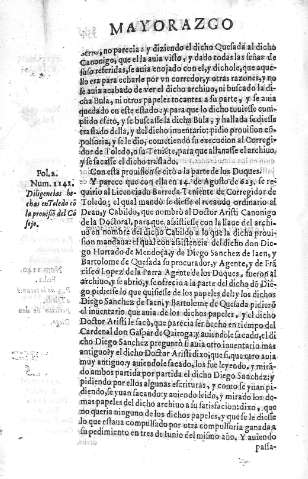 MAYORAZGO
no parecia : y diziendo el dicho Quesada al dicho
Canonigo, que el la auia visto, y dado todas las señas de
suso referidas, se auia enojado con el, y dichole, que aque-
llo era para echarle por vn corredor, y otras razones, y no
se auia acabado de ver el dicho archiuo, ni buscado la di
cha Bula, ni otros papeles tocantes a su parte, y se auia
quedado en este estado: y para que lo dicho tuuiesse cum
plido efeto, y se buscasse la dicha Bula; y hallada se diesse
traslado della, y del dicho inuentario: pidio prouision cõ-
pulsoria, y se le dio, cometiendo su execucion al Corregi-
dor de Toledo, o su Teniente, para que allanasse el archiuo
y se sacasse el dicho traslado.
Con esta prouision se cito a la parte los Duques.
Pol.2.
Num.1142.
Diligencias he-
chas en Toledo cõ
la prouisiõ del Cõ
sejo.
Y parece que con ella en 14. de Agosto de 612, se re-
quirio al Licenciado Barreda Teniente de Corregidor de
Toledo; el qual mando se diesse el recaudo ordinario al
Dean, y Cabildo, que nombrò al Doctor Aristi Canonigo
de la Doctoral, para que assistiesse con la llaue del archiuo
en nombre del dicho Cabildo a lo que la prouision
mandaua: el qual con assistencia del dicho don Diego
Hurtado de Mendoça, y de Diego Sanchez de Iaen, y
Bartolome de Quesada su procurador, y Agente, y de Frã
cisco Lopez de la Parra Agente de los Duques, fueron al
archiuo, y se abrio, y se ofrecio a la parte del dicho dõ Die-
go pidiesse lo que quisiesse de los papeles del y los dichos
Diego Sanchez de Iaen, y Bartolome de Quesada pidierõ
el inuentario que auia de los dichos papeles, y el dicho
Doctor Aristi le sacò, que parecia ser hecho en tiempo del
Cardenal don Gaspar de Quiroga; y auiendole sacado, el di
cho Diego Sanchez preguntò si auia otro inuentario mas
antiguo? y el dicho Doctor Aristi dixo, que si, que otro auia
muy antiguo, y auiendole sacado, los fue leyendo, y mirã-
do ambos partida por partida el dicho Diego Sanchez; y
pidiendo por ellos algunas escrituras, y como se yuan pi-
diendo, se yuan sacando: y auiendo leido, y mirado los de
mas papeles del dicho archiuo a su satisfacion dixo, que
no queria ninguno de los dichos papeles, y que se le diesse
lo que estaua compulsado por otra compulsoria ganada a
su pedimiento en tres de Iunio del mismo año. Y auiendo
passa-